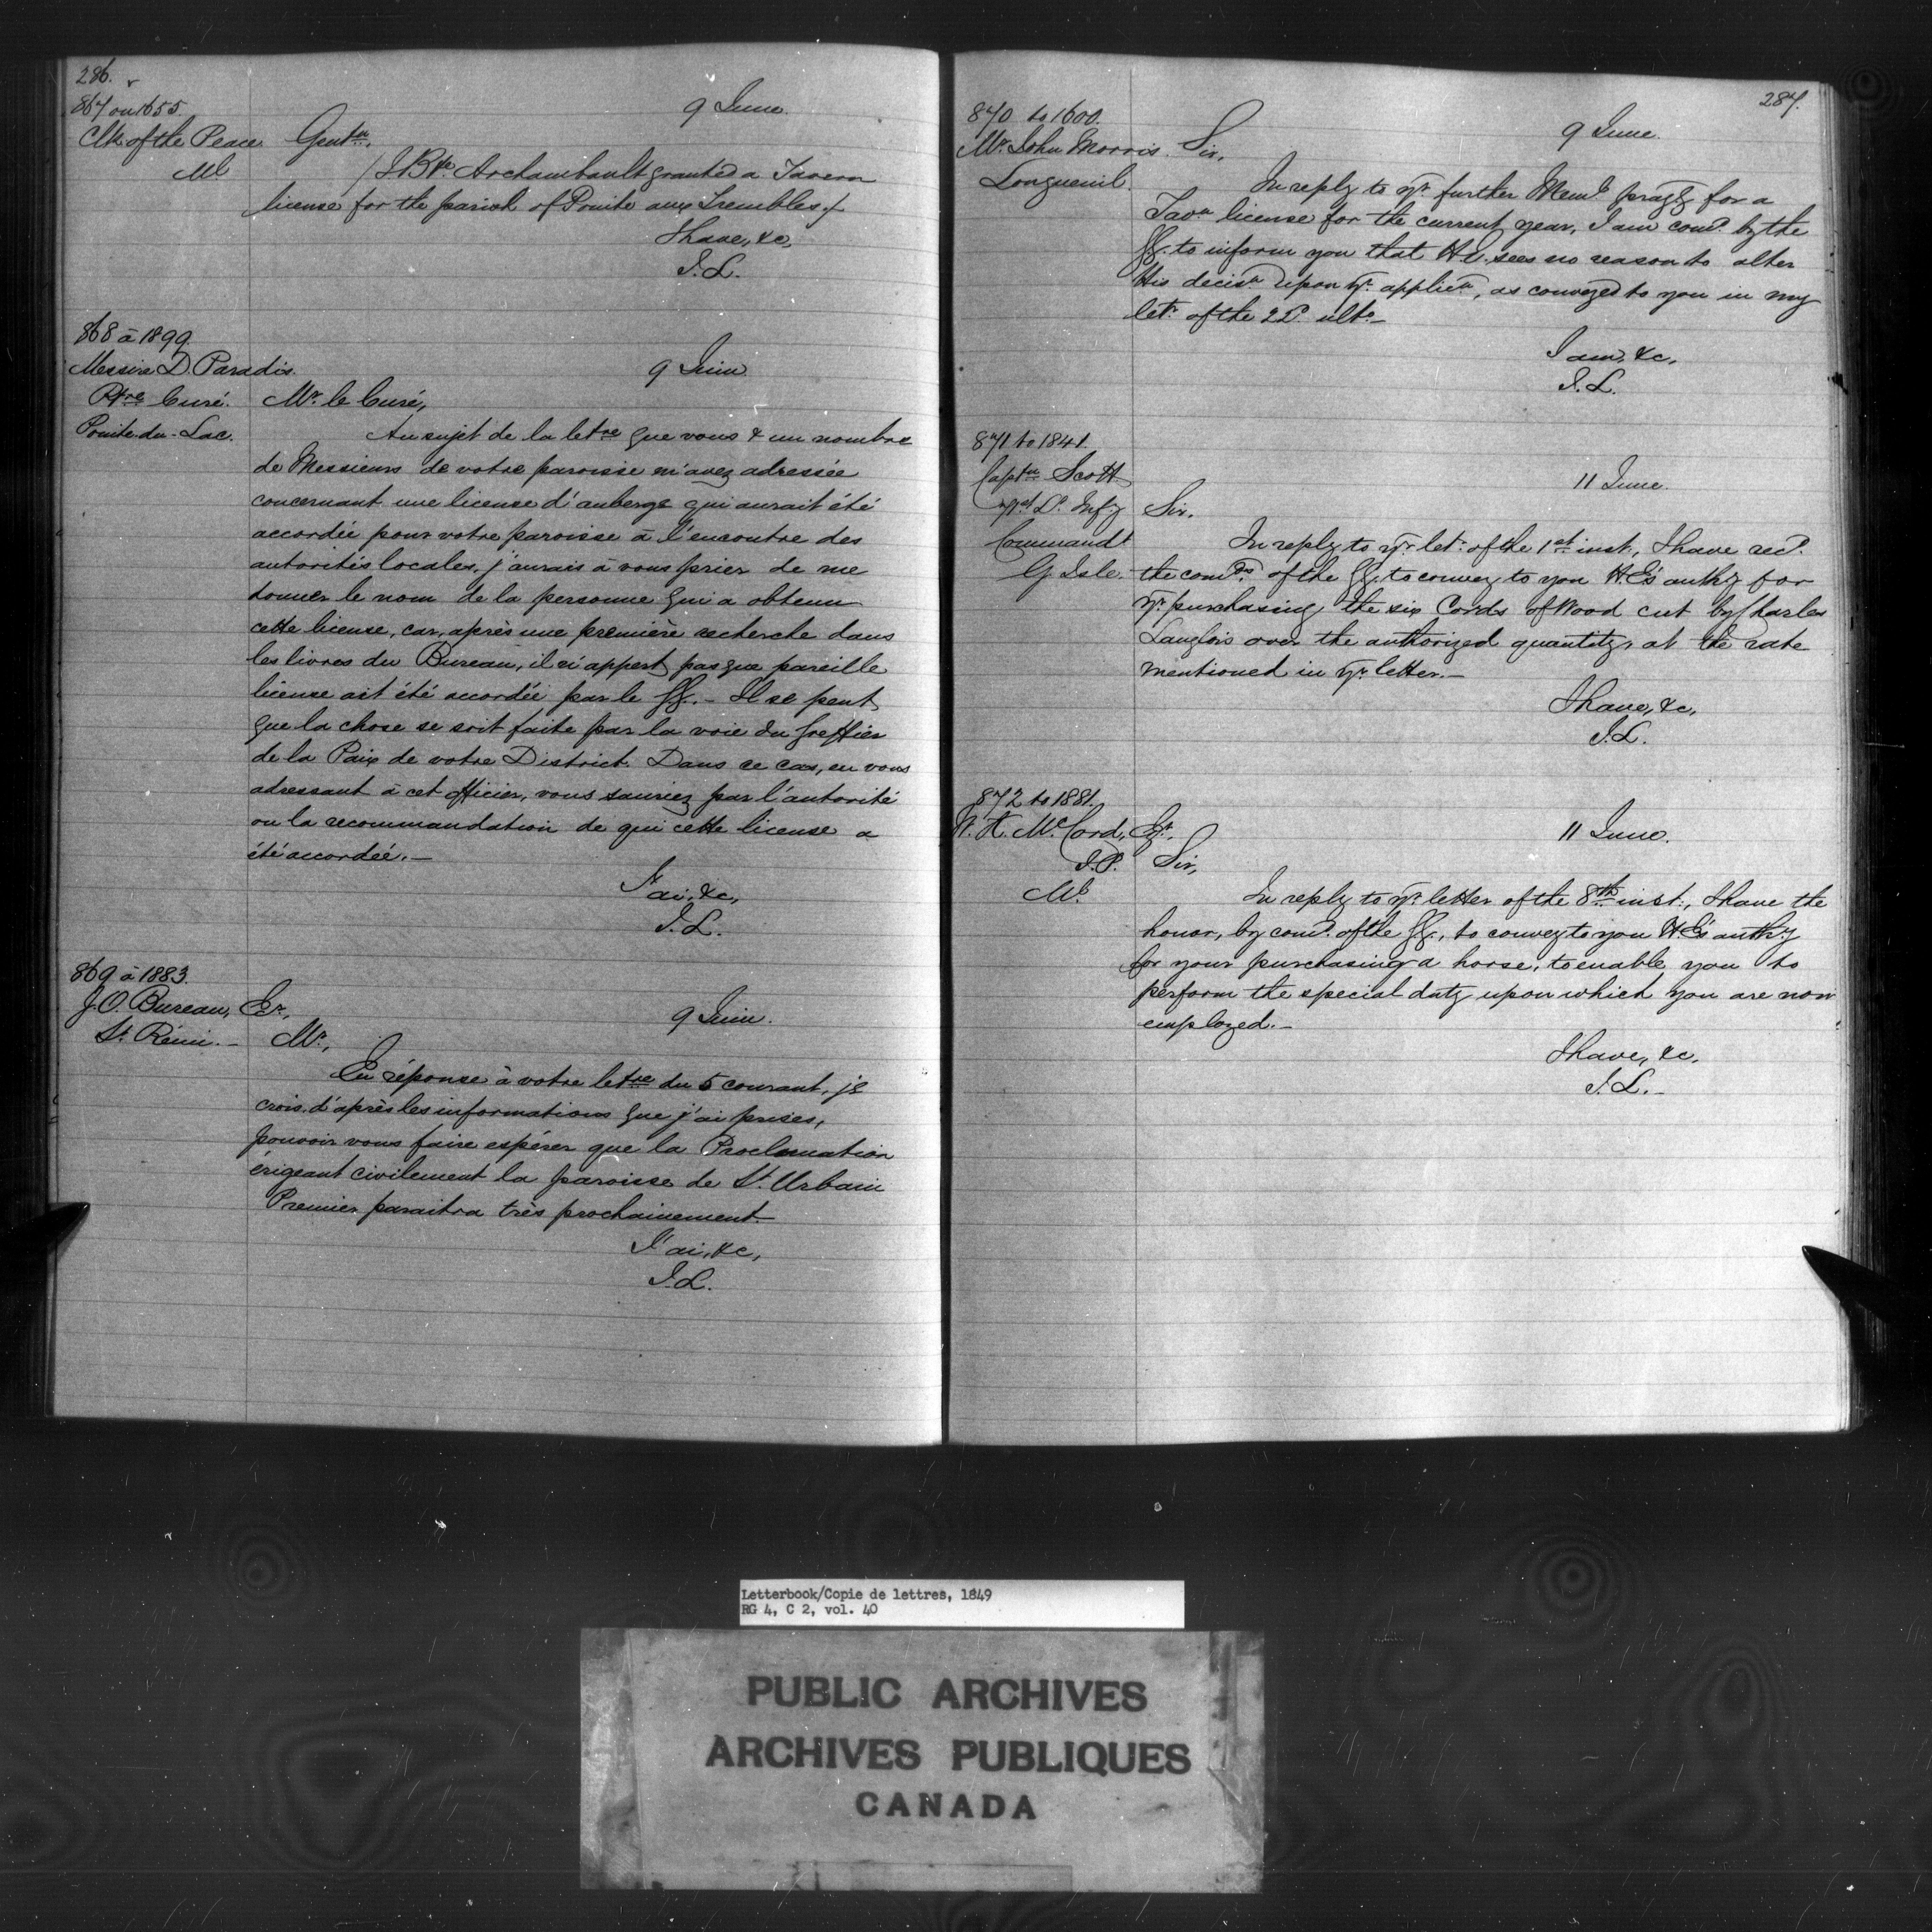 286.
867 on 1655.
9 June.
Clk. of the Peace. Gentn.
Ml
/J. Bte. Archambault granted a Tavern
license for the parish of Pointe aux Trembles./
I have, &c,
J. L.
868 à 1899.
Messire D. Paradis.
9 Juin
Ptre Curé. Mr. le Curé,
Pointe-du-Lac.
Au sujet de la letre que vous & un nombre
de Messieurs de votre paroisse m'avez adressée
concernant une license d'auberge qui aurait été
accordée pour votre paroisse à l'encontre des
autorités locales, j'aurais à vous prier de me
donner le nom de la personne qui a obtenu
cette license, car, après une première recherche dans
les livres du Bureau, il n'appert pas que pareille
license ait été accordée par le GG. - Il se peut
que la chose se soit faite par la voie du Greffier
de la Paix de votre District. Dans ce cas, en vous
adressant à cet officier, vous sauriez par l'autorité
ou la recommandation de qui cette license a
été accordée. -
J'ai, &c,
J. L.
869 à 1883.
J. O. Bureau, Er,
9 Juin.
St. Rémi. - Mr,
En réponse à votre letre du 5 courant, je
crois, d'après les informations que j'ai prises,
pouvoir vous faire espérer que la Proclamation
érigeant civilement la paroisse de St. Urbain
Premier paraitra très prochainement. -
J'ai, &c,
J. L.
287.
870 to 1600.
9 June.
Mr. John Morris. Sir,
Longueuil.
In reply to yr. further Meml. prayg for a
Tavn license for the current year, I am comd. by the
GG. to inform you that H.E. sees no reason to alter
His decisn upon yr. applicn, as conveyed to you in my
letr. of the 2d. ulto. -
I am, &c,
J. L.
871 to 1841.
Captn Scott
11 June.
Sir.
Command.t
G. Isle.
In reply to yr. letr. of the 1st inst., I have recd.
the comds. of the GG. to convey to you H.E's authy for
yr. purchasing the six Cords of Wood cut by Charles
Langlois over the authorized quantity, at the rate
mentioned in yr. letter. -
I have, &c,
J. L.
872 to 1881.
W. K. McCord, Er,
11 June.
J.P. Sir,
Ml.
In reply to yr. letter of the 8th inst., I have the
honor, by comd. of the GG., to convey to you H.E's authy
for your purchasing a horse, to enable you to
perform the special duty upon which you are now
employed. -
I have, &c,
J. L. -
Letterbook/Copie de lettres, 1849
RG 4, C 2, vol. 40
PUBLIC ARCHIVES
ARCHIVES PUBLIQUES
CANADA